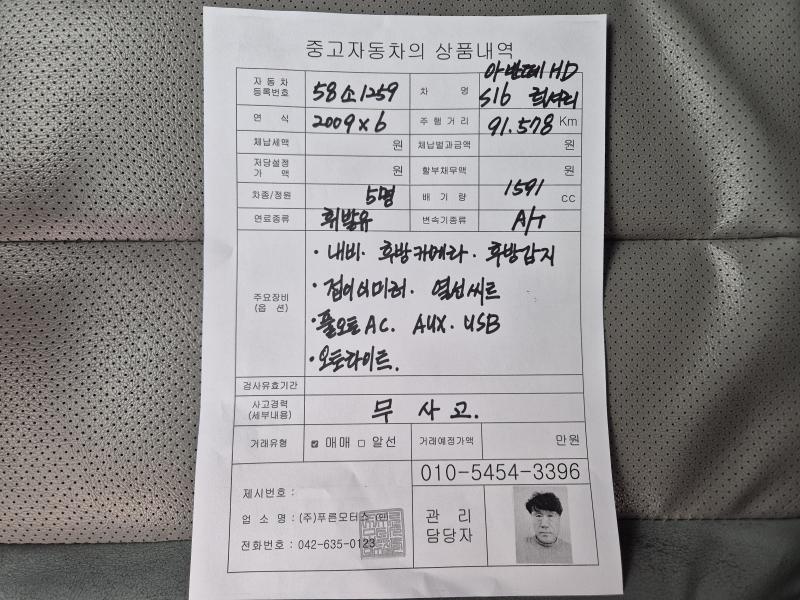 중고자동차의 상품내역
자 동 차 등록번호 58소1259 차 명 아반떼HD S16 럭셔리
연 식 2009x6 주 행 거 리 91.578 Km
체납세액 원 체납벌과금액 원
저당설정 가 액 원 할부채무액 원
차종/정원 5명 배 기 량 1591 CC
연료종류 휘발유 변속기종류 A/T
주요장비 (옵 션)
· 내비. 후방카메라. 후방감지
· 접이식미러. 열선씨트
· 풀오토AC. AUX. USB
· 오토라이트.
검사유효기간
사고경력 (세부내용) 무 사고.
거래유형 ☑ 매매 □ 알선 거래예정가액 만원
010-5454-3396
제시번호 :
업 소 명 : (주)푸른모터스
전화번호 : 042-635-0123
관 리 담당자